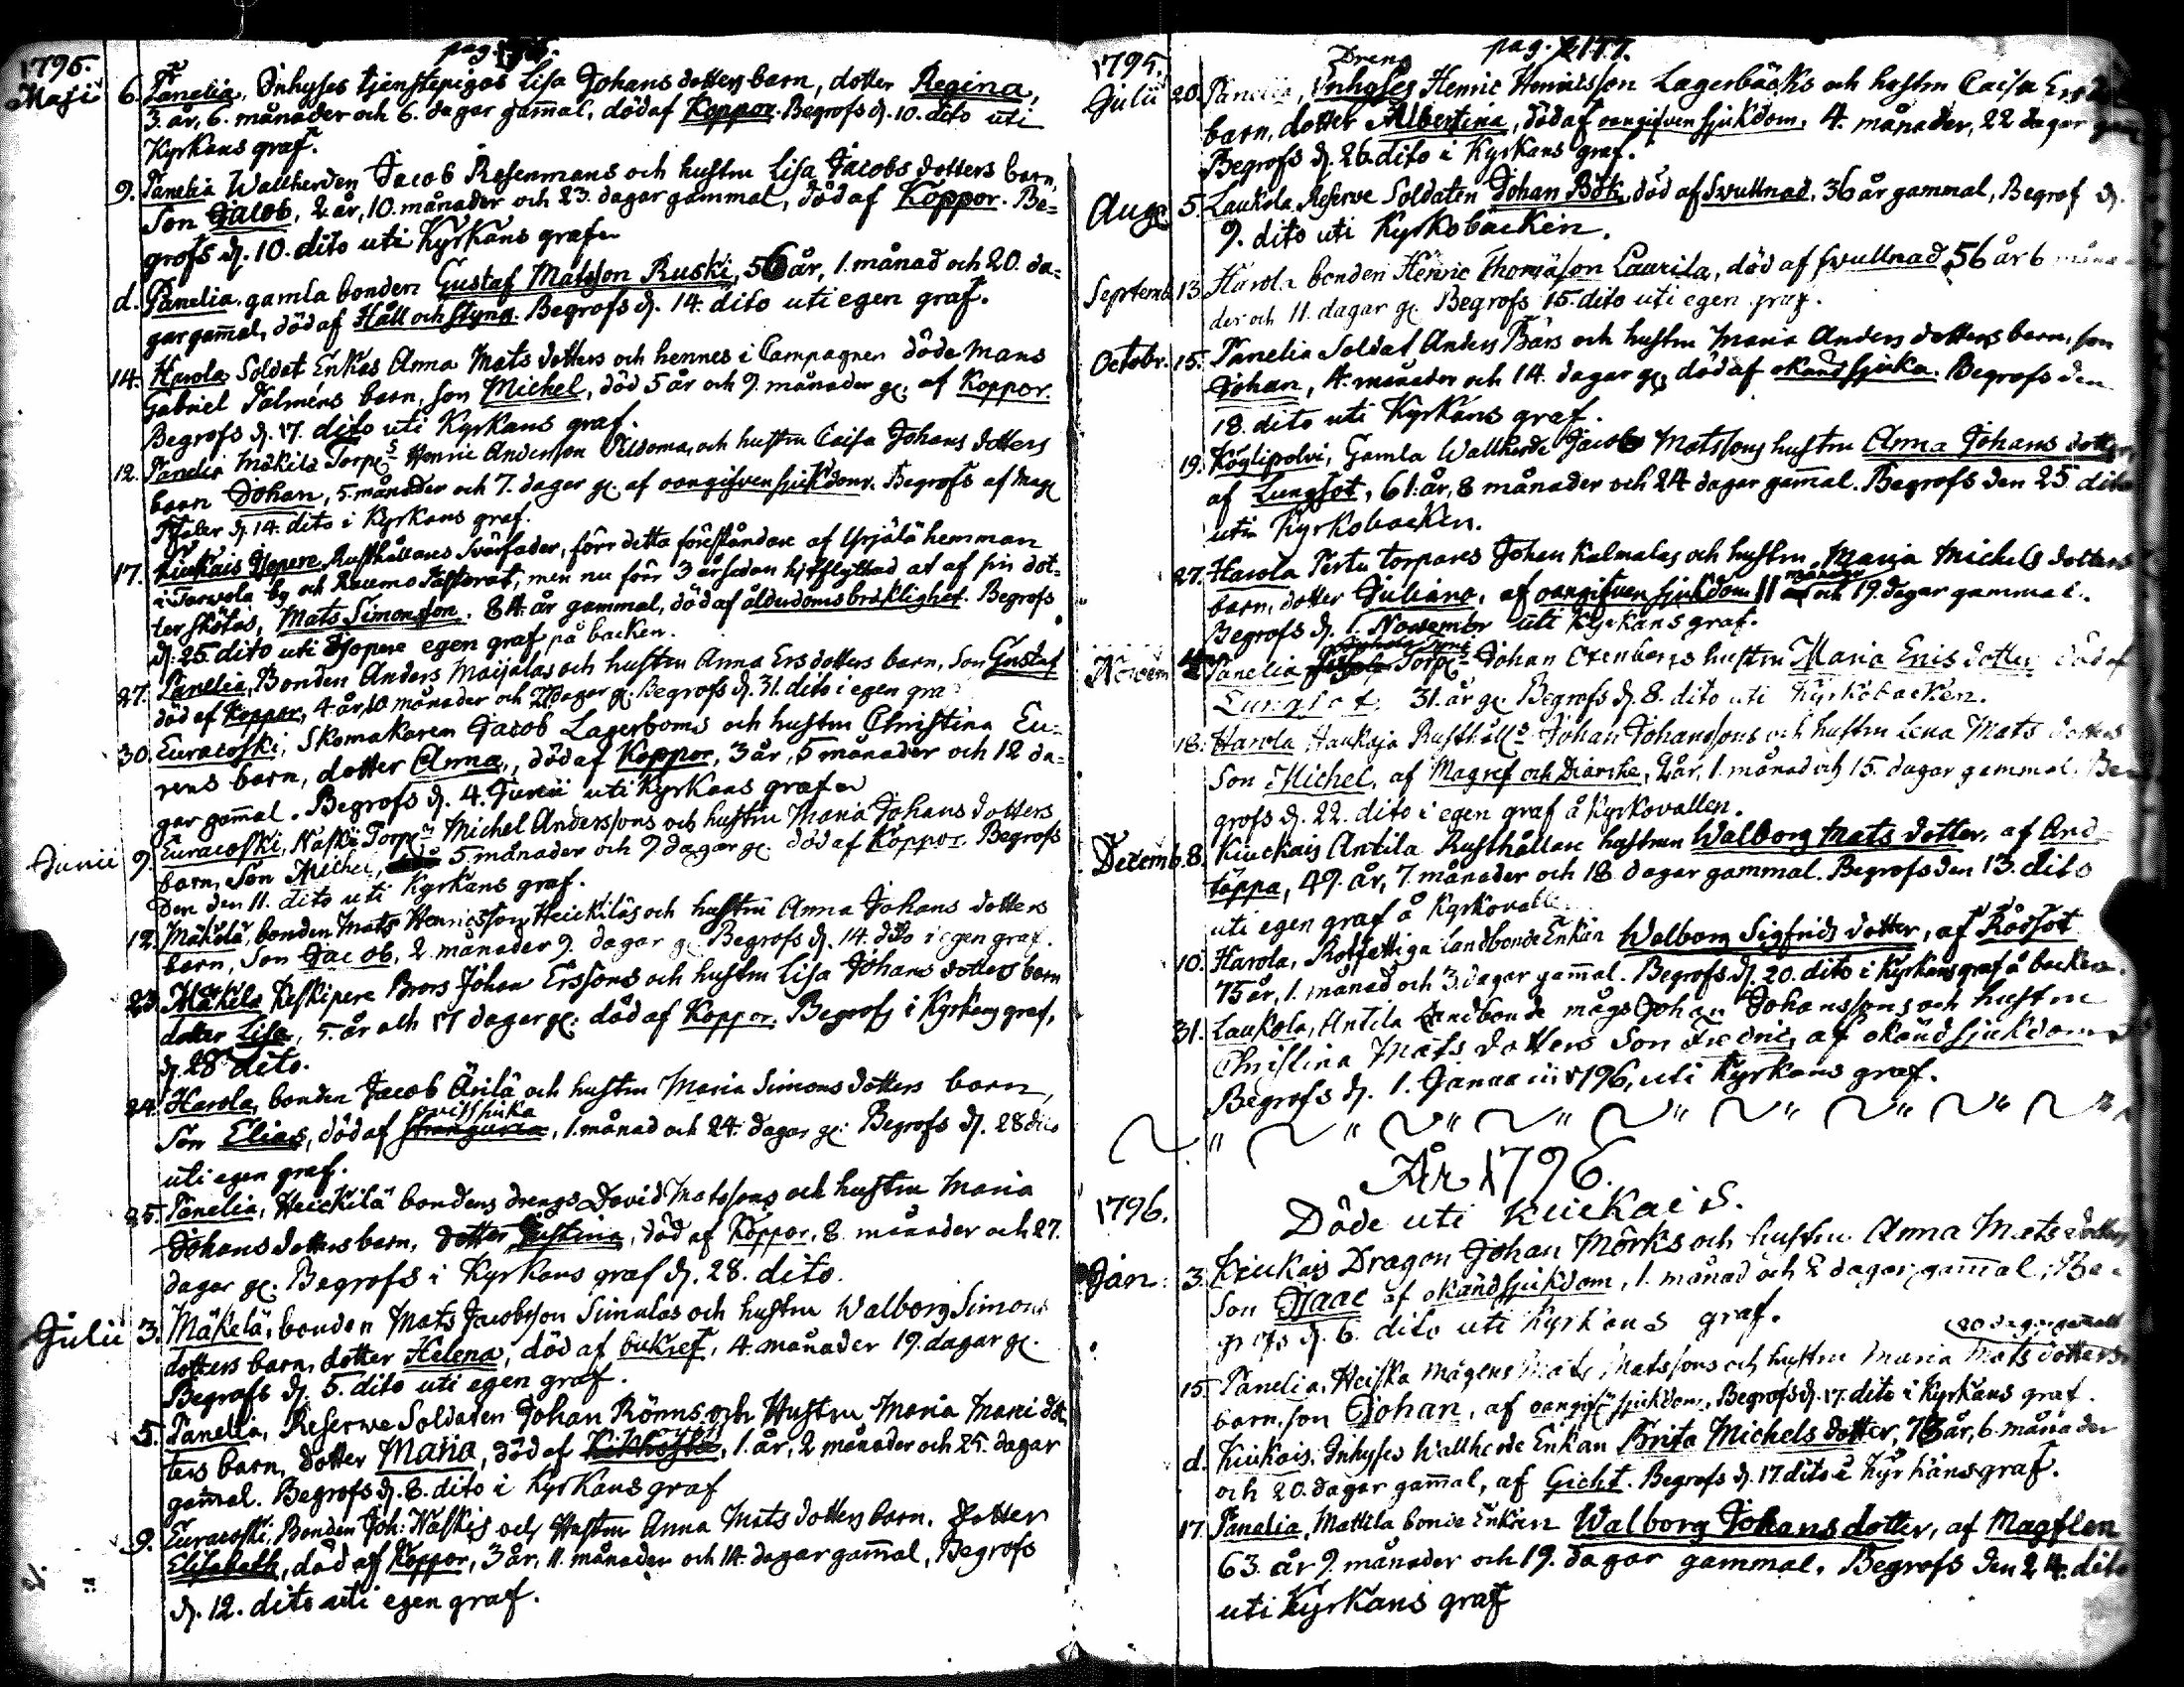 pag.
1795.
Maji 6. Panelia, Inhyses tjenstepigas Lisa Johans dotters barn, dotter Regina,
3. år, 6. månader och 6. dagar gam̄al, död af Koppor. Begrofs d. 10. dito uti
Kyrkans graf.
9. Panelia Wallherden Jacob Resenmans och hustru Lisa Jacobs dotters barn,
Son Jacob, 2 år, 10. månader och 23. dagar gammal, död af Koppor. Be=
grofs d. 10. dito uti Kyrkans grafen
d. Panelia, gamla bonden Gustaf Matsson Ruski, 56 år, 1. månad och 20. da=
gar gam̄al, död af Håll och styng. Begrofs d. 14. dito uti egen graf.
14. Harola Soldat Enkas Anna Mats dotters och hennes i Campagnen döde Mans
Gabriel Palmens barn, son Michel, död 5 år och 9. månader g. af Koppor.
Begrofs d. 17. dito uti Kyrkans graf.
12. Panelia Mäkilä Torp:s Henric Andersson och hustru Caisa Johans dotters
barn Johan, 5. månader och 7. dagar g. af oangifven sjukdom. Begrofs af Mag
d. 14. dito i Kyrkans graf.
17. Kiukais Rusthållares Svärfader, förr detta föreståndare af hemman
i by och Raumo Pastorat, men nu förr 3 år sedan hitflyttad at af sin dot=
ter skötas, Mats Simonsson. 84. år gammal, död af ålderdoms bräklighet. Begrofs
d. 25. dito uti egen graf på backen.
27. Panelia, Bonden Anders Maijalas och hustru Anna Ers dotters barn, Son Gustaf
död af Koppor, 4. år, 10 månader och dagar g. Begrofs d. 31. dito i egen gra
30. Euracoski, Skomakaren Jacob Lagerboms och hustru Christina Eu=
rens barn, dotter Anna, död af Koppor, 3 år, 5 månader och 12 da=
gar gam̄al. Begrofs d. 4. Junii uti Kyrkans grafen
Junii 9. Euracoski, Naski Torp:s Michel Anderssons och hustru Maria Johans dotters
barn, Son Michel, 5. månader och 9 dagar g. död af Koppor. Begrofs
Den den 11. dito uti Kyrkans graf.
12. Mäkelä, bonden Mats Henricsson Heickiläs och hustru Anna Johans dotters
barn, Son Jacob, 2. månader 9. dagar g. Begrofs d. 14. dito i egen graf.
23. Mäkelä Keskipere Brors Johan Erssons och hustru Lisa Johans dotters barn
dotter Lisa, 5. år och 17 dagar g. död af Koppor. Begrofs i Kyrkans graf,
d. 28 dito.
24. Harola, bonden Jacob Ärilä och hustru Maria Simons dotters barn,
Son Elias, död af stranguria, 1. månad och 24. dagar g: Begrofs d. 28 dito
uti egen graf.
25. Panelia, Heickilä bondens drengs David Matssons och hustru Maria
Johans dotters barn, dotter Justina, död af Koppor, 8. månader och 27.
dagar g. Begrofs i Kyrkans graf d. 28. dito.
Julii 3. Mäkelä, bonden Mats Jacobsson Simulas och hustru Walborg Simons
dotters barn, dotter Helena, död af bukref, 4. månader 19. dagar g.
Begrofs d. 5. dito uti egen graf.
5. Panelia, Reserve Soldaten Johan Rönns och Hustru Maria
ters barn, Dotter Maria, död af Kikhosta, 1. år, 2 månader och 25. dagar
gam̄al. Begrofs d. 8. dito i Kyrkans graf
9. Euracoski, Bonden Joh: Naskis och Hustru Anna Mats dotters barn. Dotter
Elisabeth, död af Koppor, 3 år, 11. månader och 14. dagar gam̄al, Begrofs
d. 12. dito uti egen graf.
pag. 177.
1795.
Dreng
Julii 20. Panelia, Inhyses Henric Henricsson Lagerbäcks och hustru Caisa
barn, dotter Albertina, död af oangifven sjukdom, 4. månader, 22 dagar
Begrofs d. 26. dito i Kyrkans graf.
Aug. 5. Laukola, Reserve Soldaten Johan Bök, död af Svullnad, 36 år gammal, Begrof d.
9. dito uti Kyrkobacken.
Septemb. 13. Harola bonden Henric Thomasson Laurila, död af svullnad, 56 år 6 måna
der och 11. dagar g. Begrofs 15. dito uti egen graf.
Octobr. 15. Panelia Soldat Anders Bärs och hustru Maria Anders dotters barn, son
Johan, 4. månader och 14. dagar g. död af okänd sjuka. Begrofs den
18. dito uti Kyrkans graf.
19. Köylipolvi, Gamla Wallherde Jacob Matssons hustru Anna Johans dotter,
af Lungsot, 61. år, 8 månader och 24 dagar gam̄al. Begrofs den 25 dito
uti Kyrkobacken.
27. Harola Pertu torpares Johan Kalmalas och hustru Maria Michels dotters
barn, dotter Juliana, af oangifven sjukdom 11 månader och 19. dagar gammal.
Begrofs d. 1. Novembr uti Kyrkans graf.
Novem Panelia Torp: Johan Oxenbergs hustru Maria Erics dotter död af
Lungsot. 31. år g. Begrofs d. 8. dito uti Kyrkobacken.
18. Harola Haukoja Rusthåll:s Johan Johanssons och hustru Lena Mats dotters
Son Michel, af Magref och Diarrhe, 2 år, 1. månad och 15. dagar gammal. Be=
grofs d. 22. dito i egen graf å Kyrkovallen.
Decemb. 8. Kiuckais Antila Rusthållare hustrun Walborg Mats dotter, af And=
täppa, 49. år, 7. månader och 18 dagar gammal. Begrofs den 13. dito
uti egen graf å Kyrkovalle
10. Harola, Rotfattiga Landbonde Enkan Walborg Sigfrids dotter, af Rödsot
75 år, 1. månad och 3. dagar gam̄al. Begrofs d. 20. dito i Kyrkans graf å backen.
31. Laukola, Antila Landbonde mågs Johan Johanssons och hustru
Christina Mats dotters Son Fredric, af okänd sjukdom
Begrofs d. 1. Januarii 1796, uti Kyrkans graf.
År 1796.
1796. Döde uti Kiukais.
Jan: 3. Kiukais Dragon Johan Mörks och hustru Anna Mats dotters
Son Isaac af okänd sjukdom, 1. månad och 2 dagar gam̄al; Be=
grofs d. 6. dito uti Kyrkans graf.
20 dagar gammalt
15. Panelia, Heiska mågens Mats Matssons och hustru Maria Mats dotters
barn, son Johan, af oangif: sjukdom, Begrofs d. 17. dito i Kyrkans graf.
d. Kiukais, Inhyses Wallherde Enkan Brita Michels dotter, 73 år, 6. månader
och 20. dagar gam̄al, af Gicht. Begrofs d. 17. dito i Kyrkans graf.
17. Panelia, Mattila bonde Enkan Walborg Johans dotter, af Magflen
63. år 9. månader och 19. dagar gammal. Begrofs den 24. dito
uti Kyrkans graf